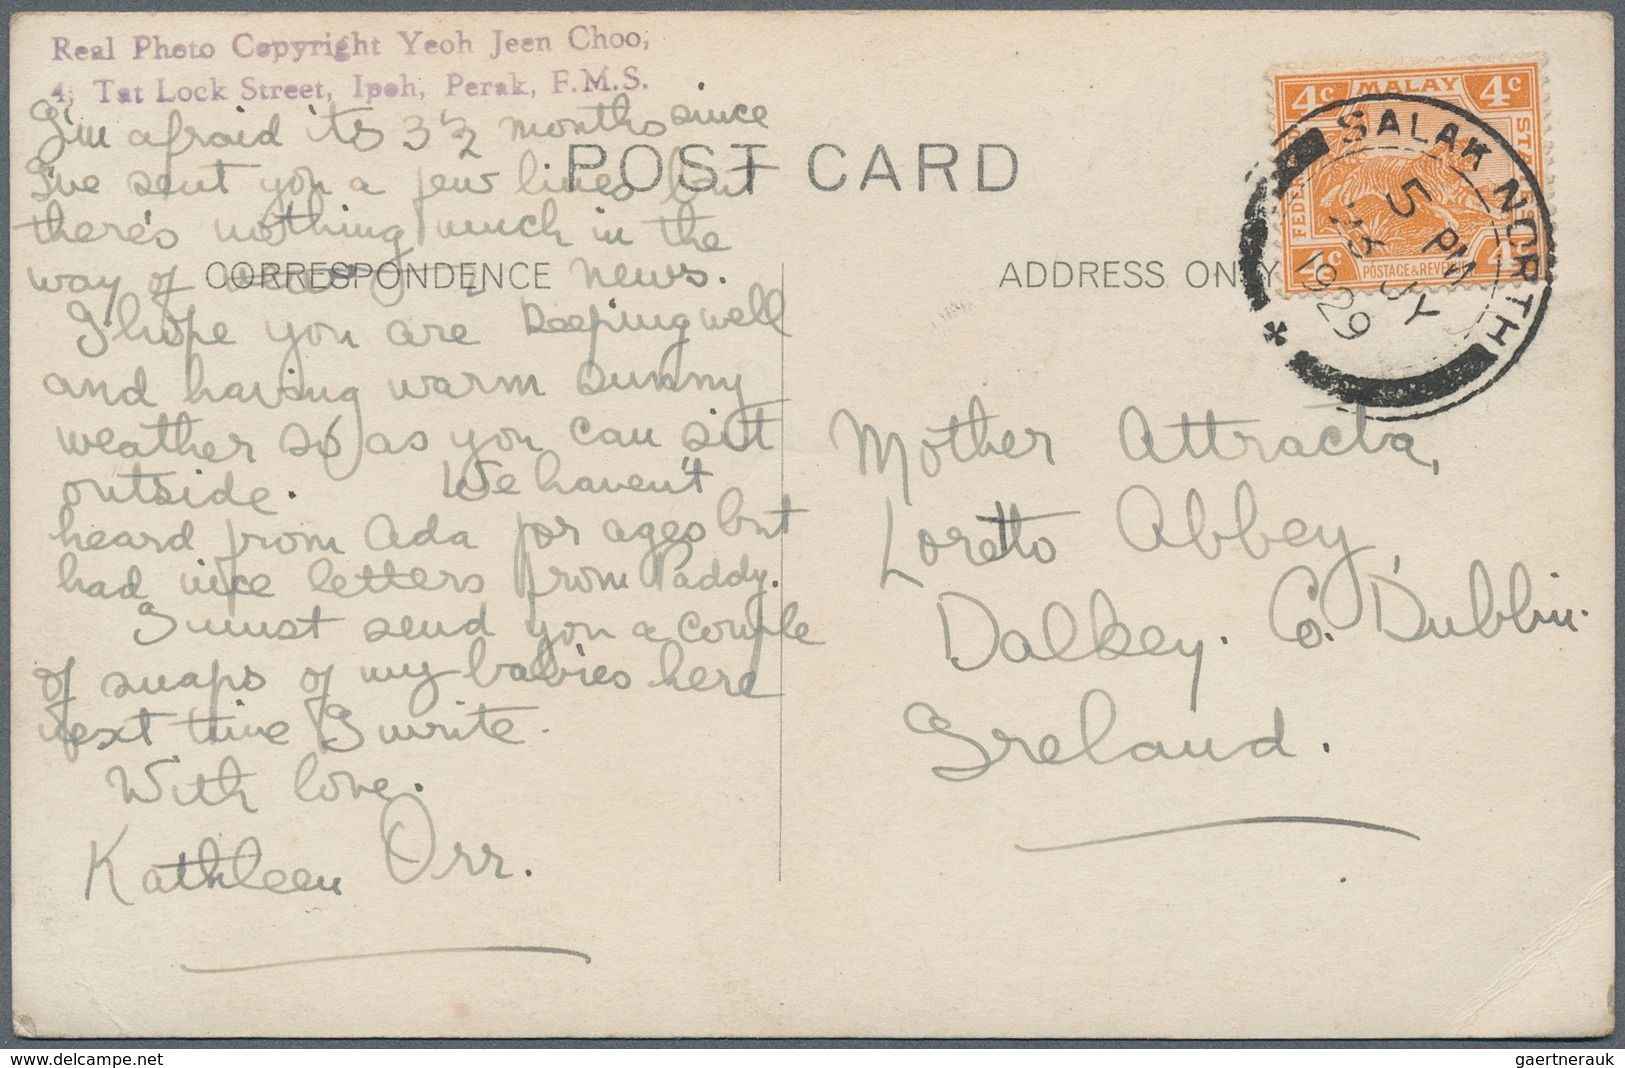 Real Photo Copyright Yeoh Jeen Choo,
4, Tat Lock Street, Ipoh, Perak, F.M.S.
I'm afraid its 3 1/2 months since
I've sent you a few lines but
there's nothing much in the
way of news.
I hope you are keeping well
and having warm sunny
weather so as you can sit
outside. We haven't
heard from Ada for ages but
had nice letters from Paddy.
I must send you a couple
of snaps of my babies here
next time I write.
With love.
Kathleen Orr.
POST CARD
CORRESPONDENCE
ADDRESS ONLY
4c MALAY 4c
FEDERATED
STATES
4c POSTAGE & REVENUE 4c
SALAK NORTH
5 PM
JY
1929
Mother Attracta,
Loretto Abbey,
Dalkey. Co. Dublin.
Ireland.
www.delcampe.net
gaertnerauk